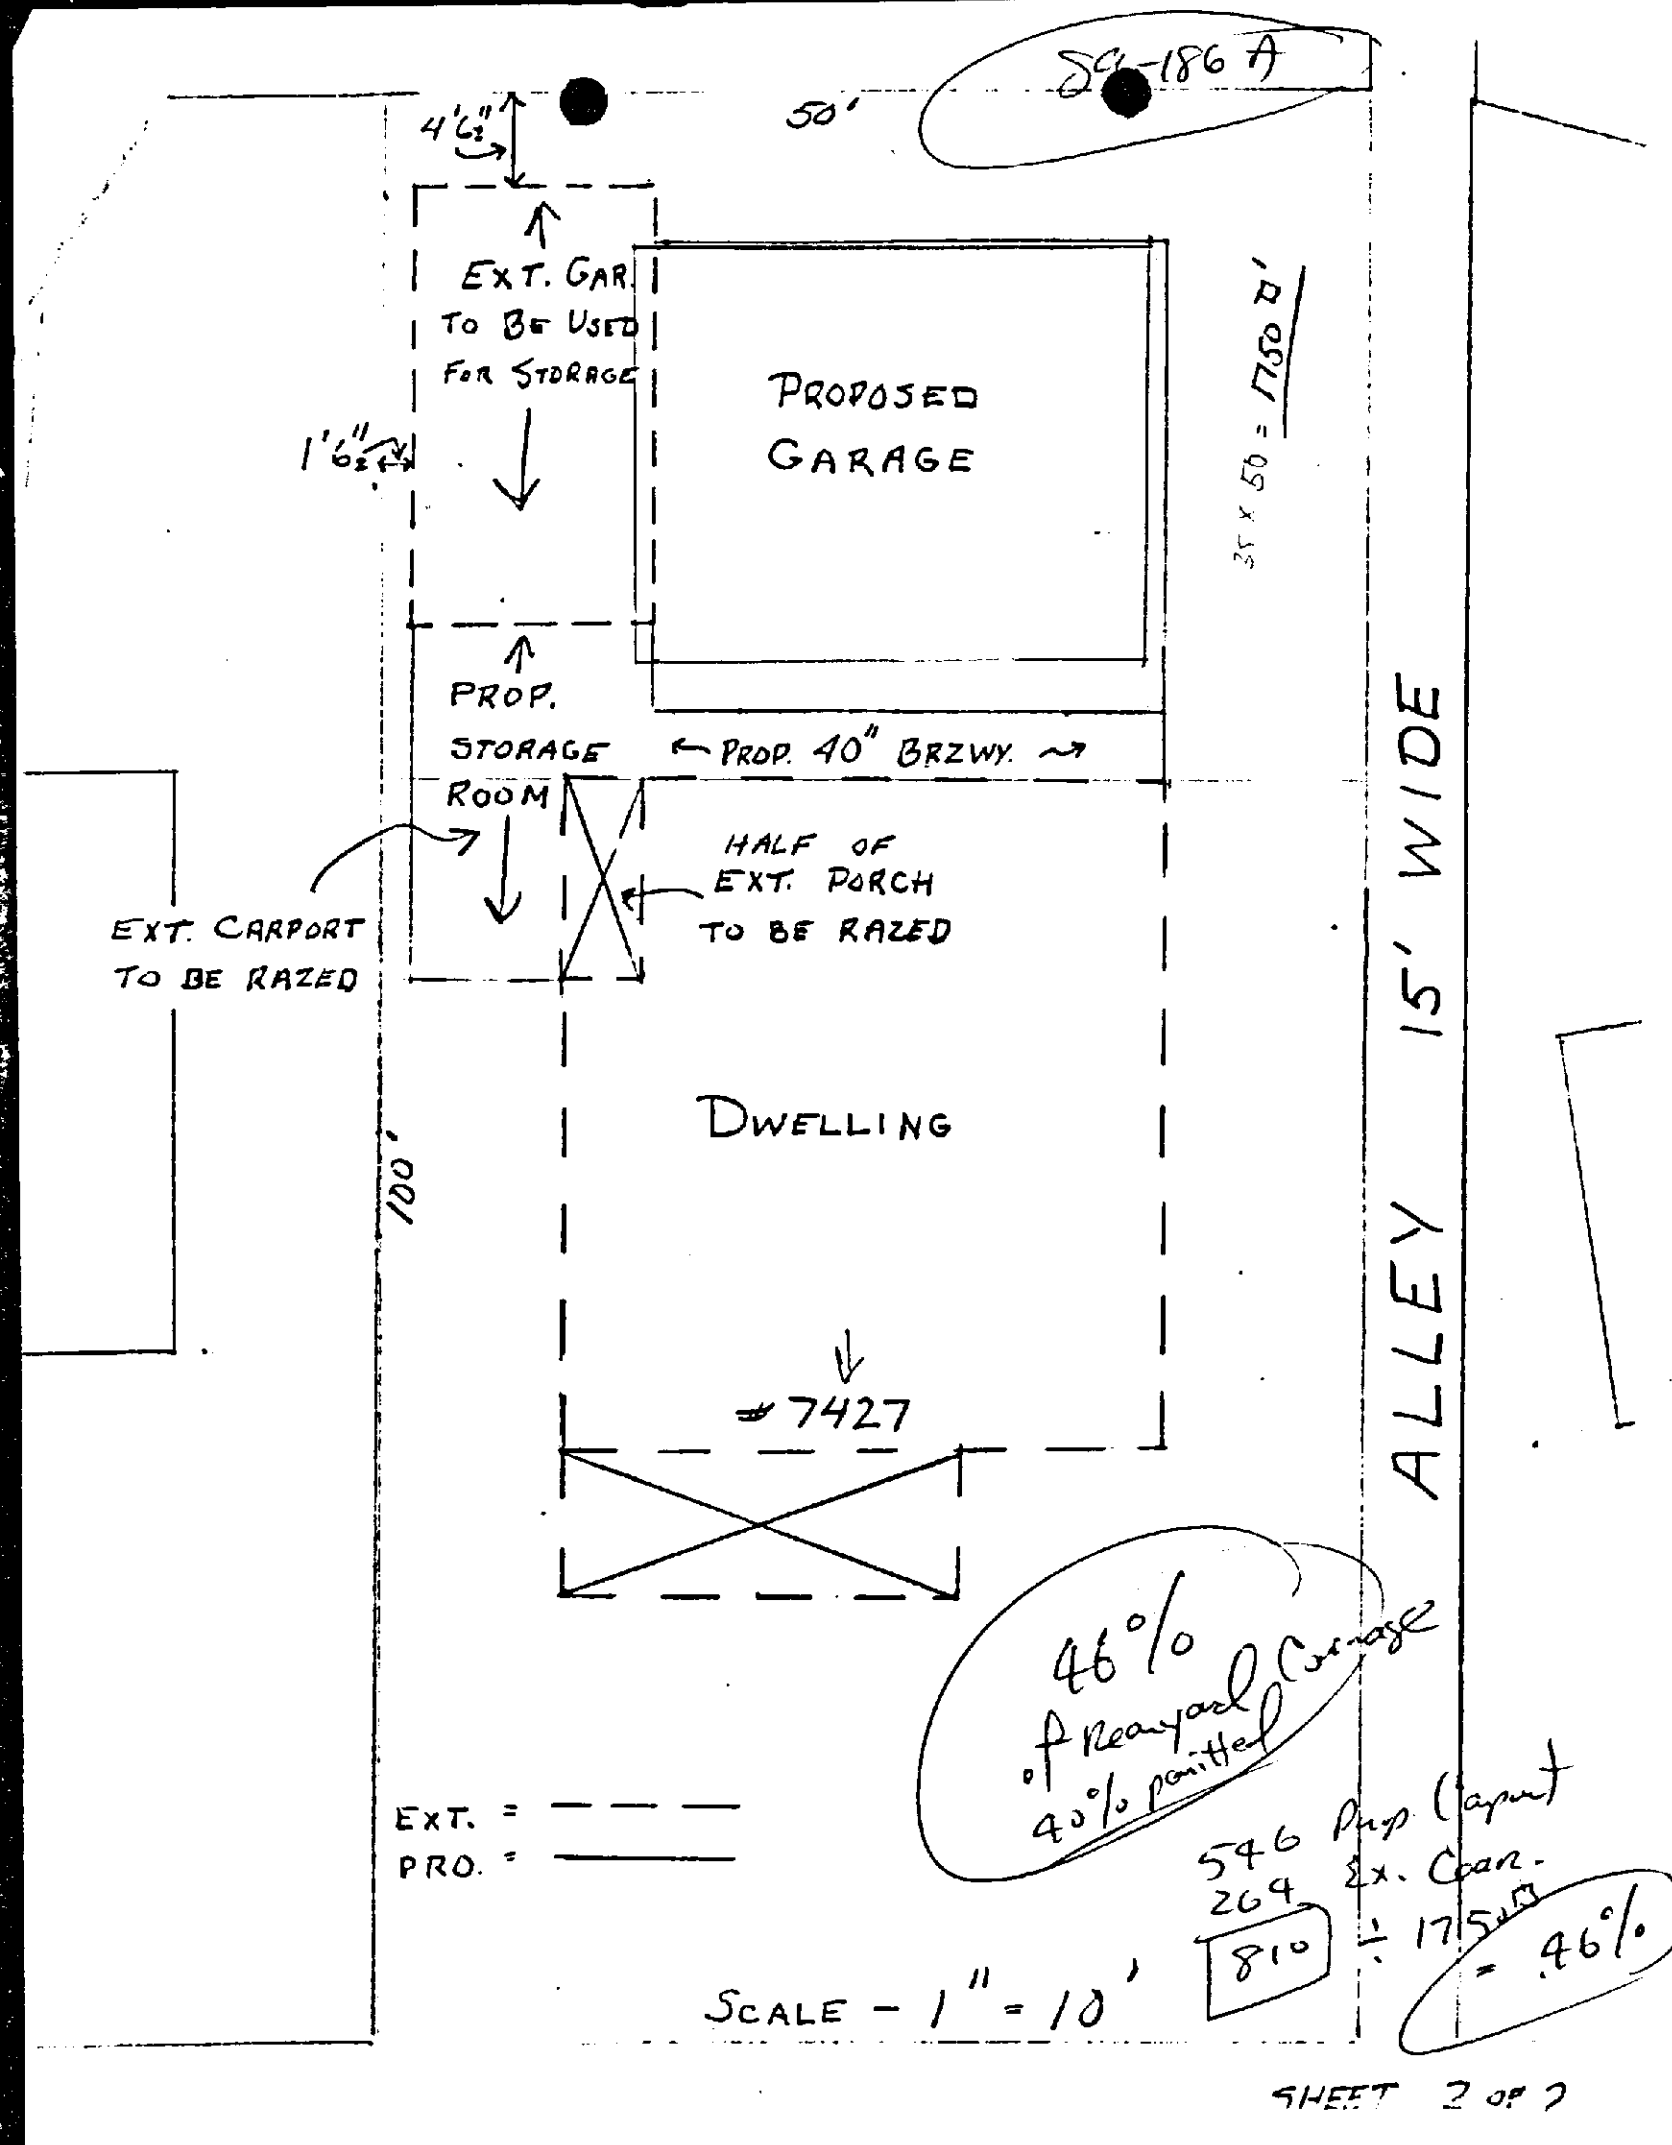 89-186 A
50'
4'6½"
EXT. GAR.
TO BE USED
FOR STORAGE
1'6½"
PROPOSED
GARAGE
35 x 50 = 1750 □'
PROP.
STORAGE
ROOM
← PROP. 40" BRZWY. →
HALF OF
EXT. PORCH
TO BE RAZED
EXT. CARPORT
TO BE RAZED
ALLEY 15' WIDE
100'
DWELLING
# 7427
46%
of Rearyard Coverage
40% permitted
EXT. =
PRO. =
546 Prop Carport
264 Ex.
810 ÷ 1750 □ = .46%
SCALE - 1" = 10'
SHEET 2 OF 2